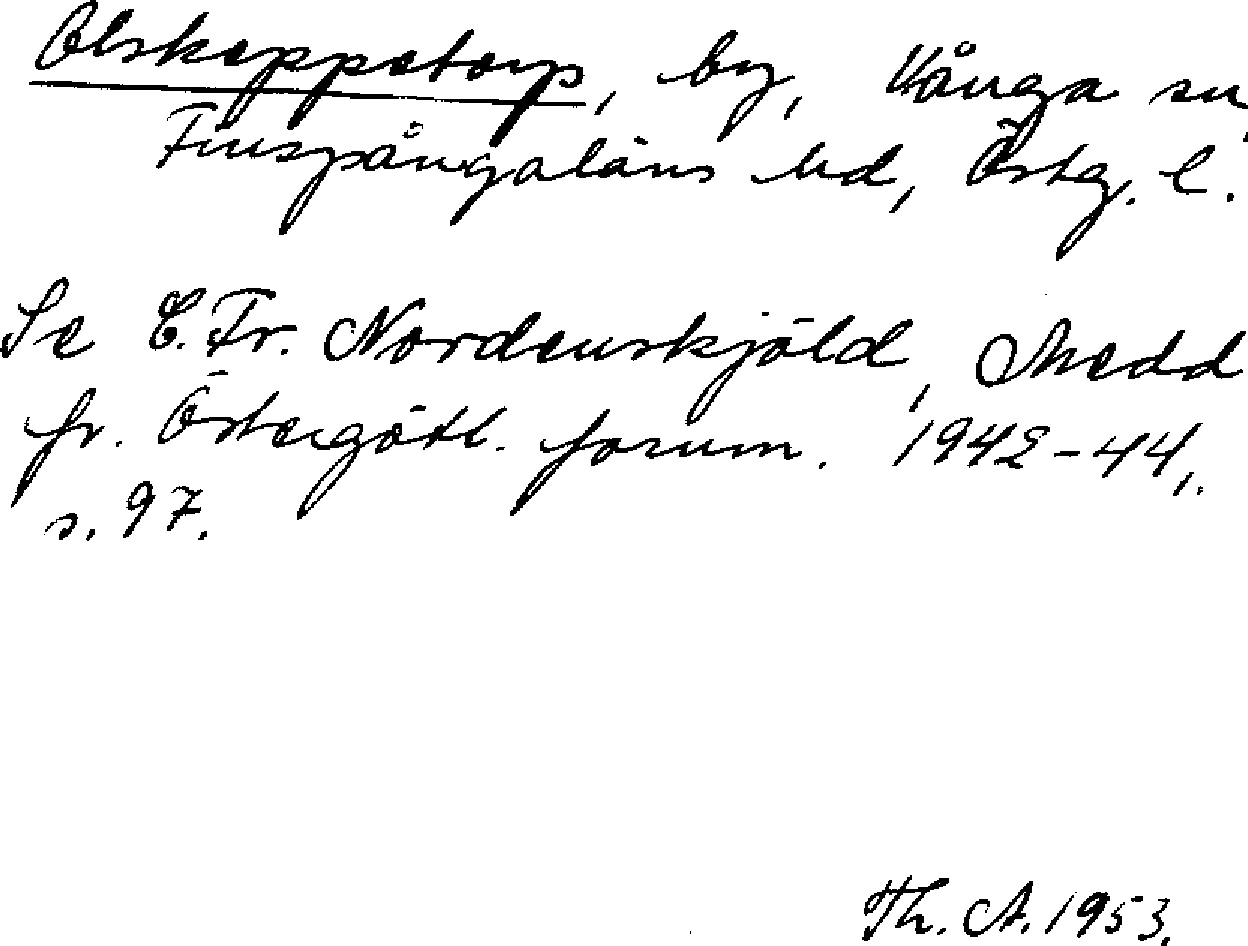 Olskeppetorp, by, Vånga sn
Finspångaläns hd, Östg. l.
Se C. Fr. Nordenskjöld, Medd
fr. Östergötl. fornm. 1942-44,
s. 97.
Th. A. 1953.